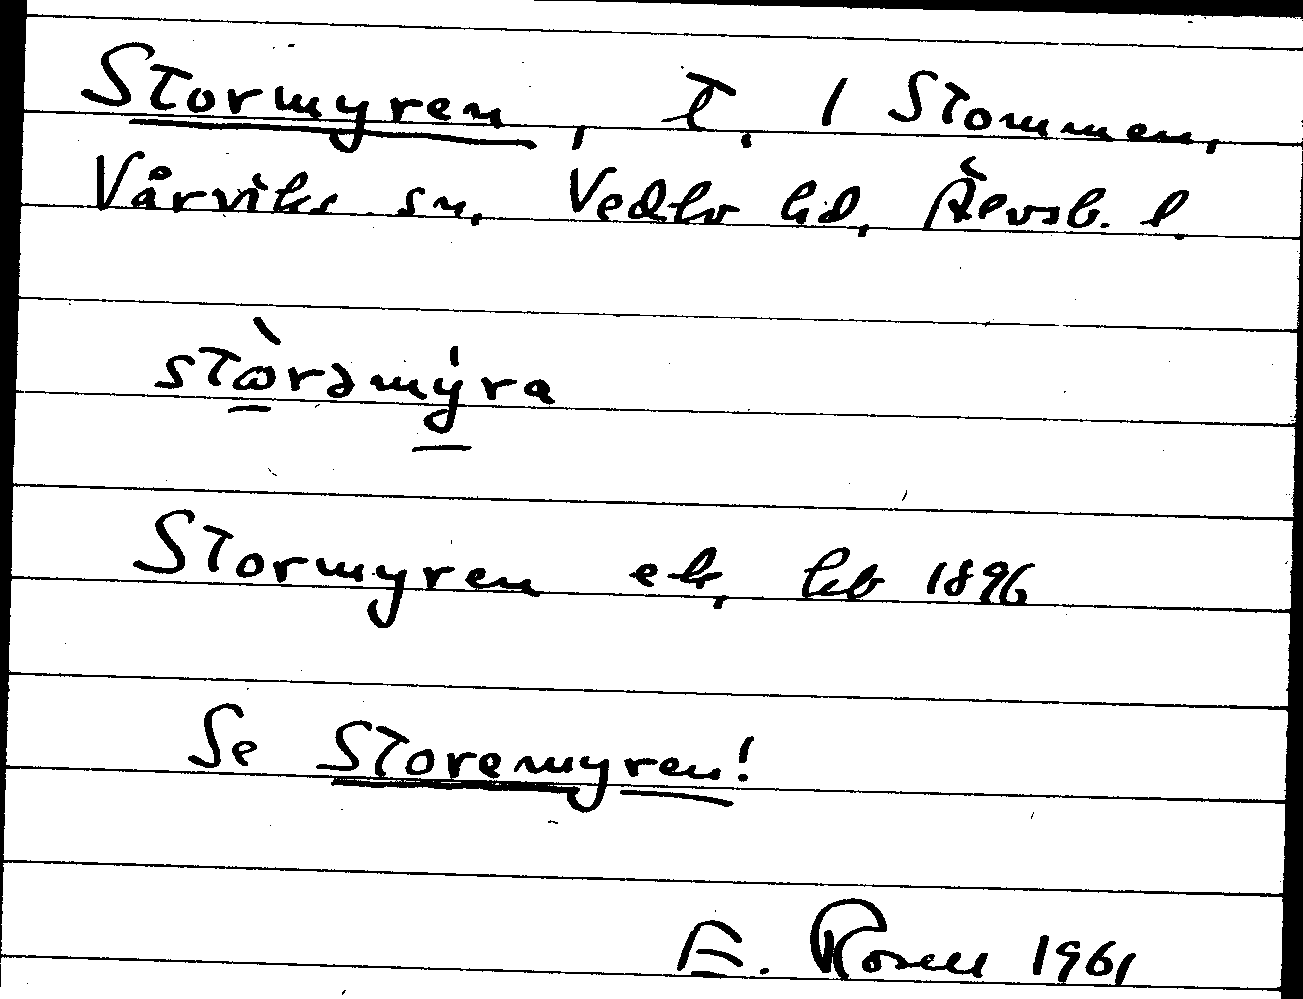 Stormyren, t. 1 Stommen,
Vårviks sn, Vedbo hd, Älvsb. l.
stò̱rəmý̱ra
Stormyren ek, kb 1896
Se Storemyren!
E. Rosell 1961